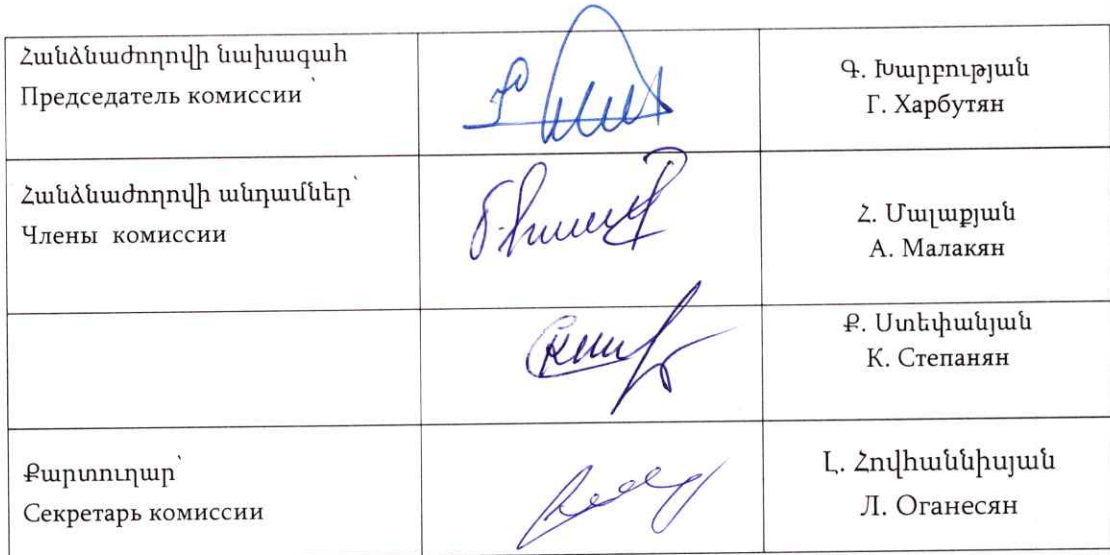 Հանձնաժողովի նախագահ՝
Председатель комиссии
Գ. Խարբության
Г. Харбутян
Հանձնաժողովի անդամներ՝
Члены комиссии
Հ. Մալաքյան
А. Малакян
Ք. Ստեփանյան
К. Степанян
Քարտուղար՝
Секретарь комиссии
Լ. Հովհաննիսյան
Л. Оганесян